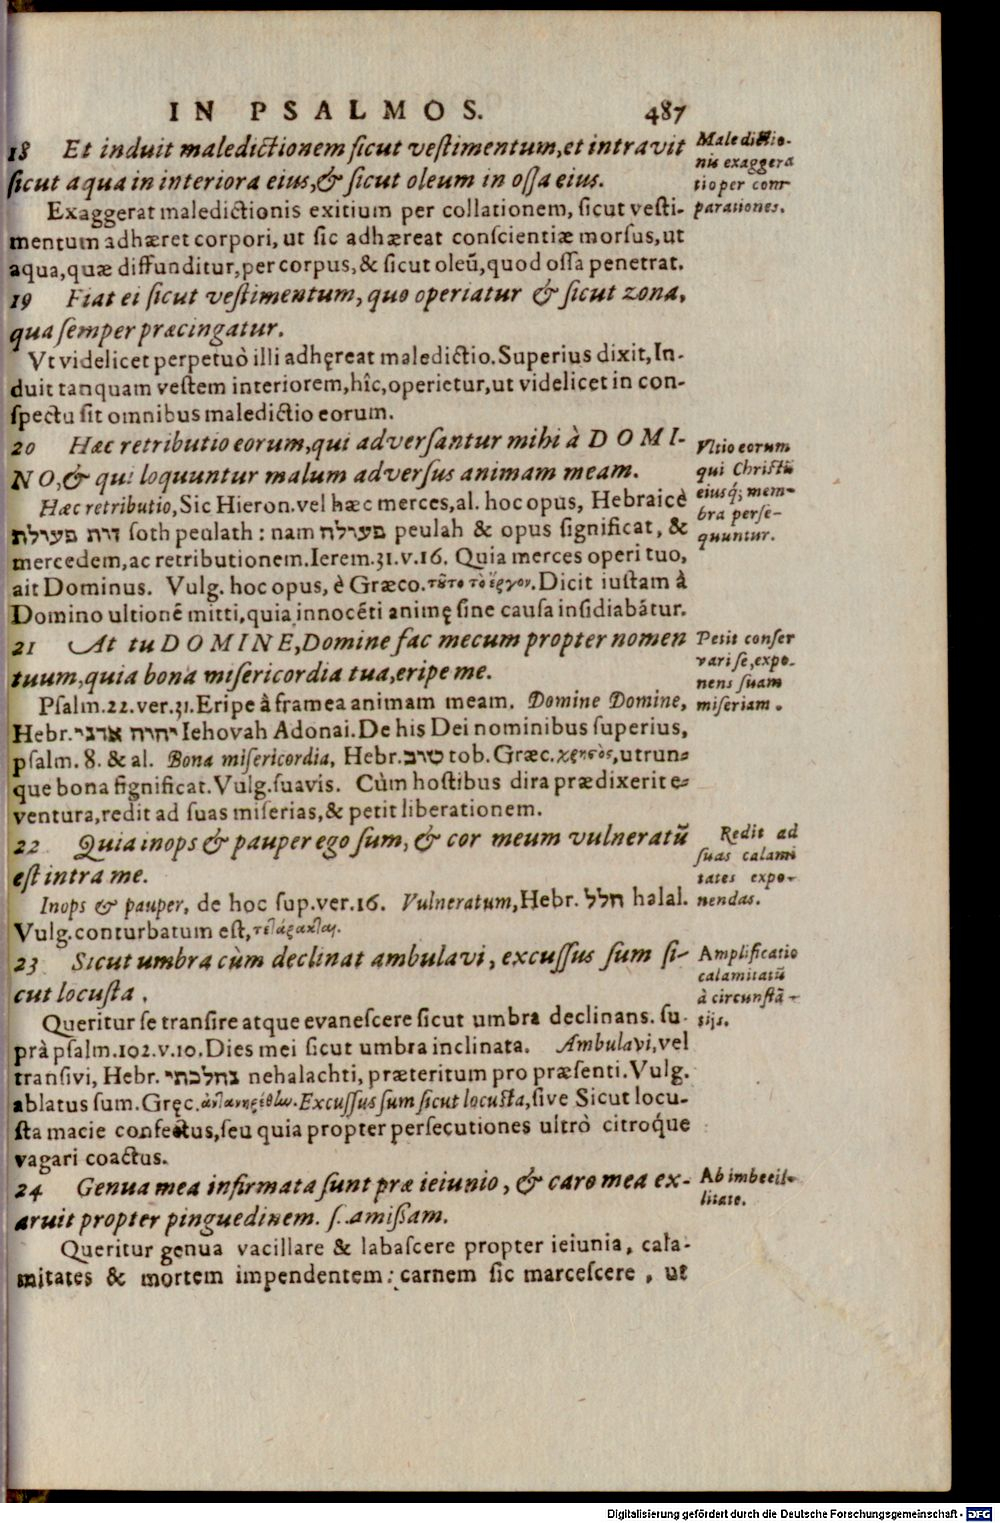 IN PSALMOS. 487
18 Et induit maledictionem sicut vestimentum, et intravit
sicut aqua in interiora eius, & sicut oleum in ossa eius.
Maledictio-
nis exaggera
tio per com-
parationes.
Exaggerat maledictionis exitium per collationem, sicut vesti-
mentum adhæret corpori, ut sic adhæreat conscientiæ morsus, ut
aqua, quæ diffunditur, per corpus, & sicut oleũ, quod ossa penetrat.
19 Fiat ei sicut vestimentum, quo operiatur & sicut zona,
qua semper præcingatur.
Vt videlicet perpetuò illi adhęreat maledictio. Superius dixit, In-
duit tanquam vestem interiorem, hîc, operietur, ut videlicet in con-
spectu sit omnibus maledictio eorum.
20 Hæc retributio eorum, qui adversantur mihi à DOMI-
NO, & qui loquuntur malum adversus animam meam.
Vltio eorum
qui Christũ
eiusq́; mem-
bra perse-
quuntur.
Hæc retributio, Sic Hieron. vel hæc merces, al. hoc opus, Hebraicè
זות פעולת soth peulath: nam פעולה peulah & opus significat, &
mercedem, ac retributionem. Ierem. 31. v. 16. Quia merces operi tuo,
ait Dominus. Vulg. hoc opus, è Græco. τοῦτο τὸ ἔργον. Dicit iustam à
Domino ultionẽ mitti, quia innocẽti animę sine causa insidiabãtur.
21 At tu DOMINE, Domine fac mecum propter nomen
tuum, quia bona misericordia tua, eripe me.
Petit conser
vari se, expo-
nens suam
miseriam.
Psalm. 22. ver. 31. Eripe à framea animam meam. Domine Domine,
Hebr. יהוה אדני Iehovah Adonai. De his Dei nominibus superius,
psalm. 8. & al. Bona misericordia, Hebr. טוב tob. Græc. χρηστὸς, utrun-
que bona significat. Vulg. suavis. Cùm hostibus dira prædixerit e-
ventura, redit ad suas miserias, & petit liberationem.
22 Quia inops & pauper ego sum, & cor meum vulneratũ
est intra me.
Redit ad
suas calami
tates expo-
nendas.
Inops & pauper, de hoc sup. ver. 16. Vulneratum, Hebr. חלל halal.
Vulg. conturbatum est, τετάρακται.
23 Sicut umbra cùm declinat ambulavi, excussus sum si-
cut locusta.
Amplificatio
calamitatũ
à circunstã-
tijs.
Queritur se transire atque evanescere sicut umbra declinans. su-
prà psalm. 102. v. 10. Dies mei sicut umbra inclinata. Ambulavi, vel
transivi, Hebr. נהלכתי nehalachti, præteritum pro præsenti. Vulg.
ablatus sum. Gręc. ἀντανηρέθην. Excussus sum sicut locusta, sive Sicut locu-
sta macie confectus, seu quia propter persecutiones ultrò citroq́ue
vagari coactus.
24 Genua mea infirmata sunt præ ieiunio, & caro mea ex-
aruit propter pinguedinem. s. amissam.
Ab imbecil-
litate.
Queritur genua vacillare & labascere propter ieiunia, cala-
mitates & mortem impendentem: carnem sic marcescere, ut
Digitalisierung gefördert durch die Deutsche Forschungsgemeinschaft - DFG